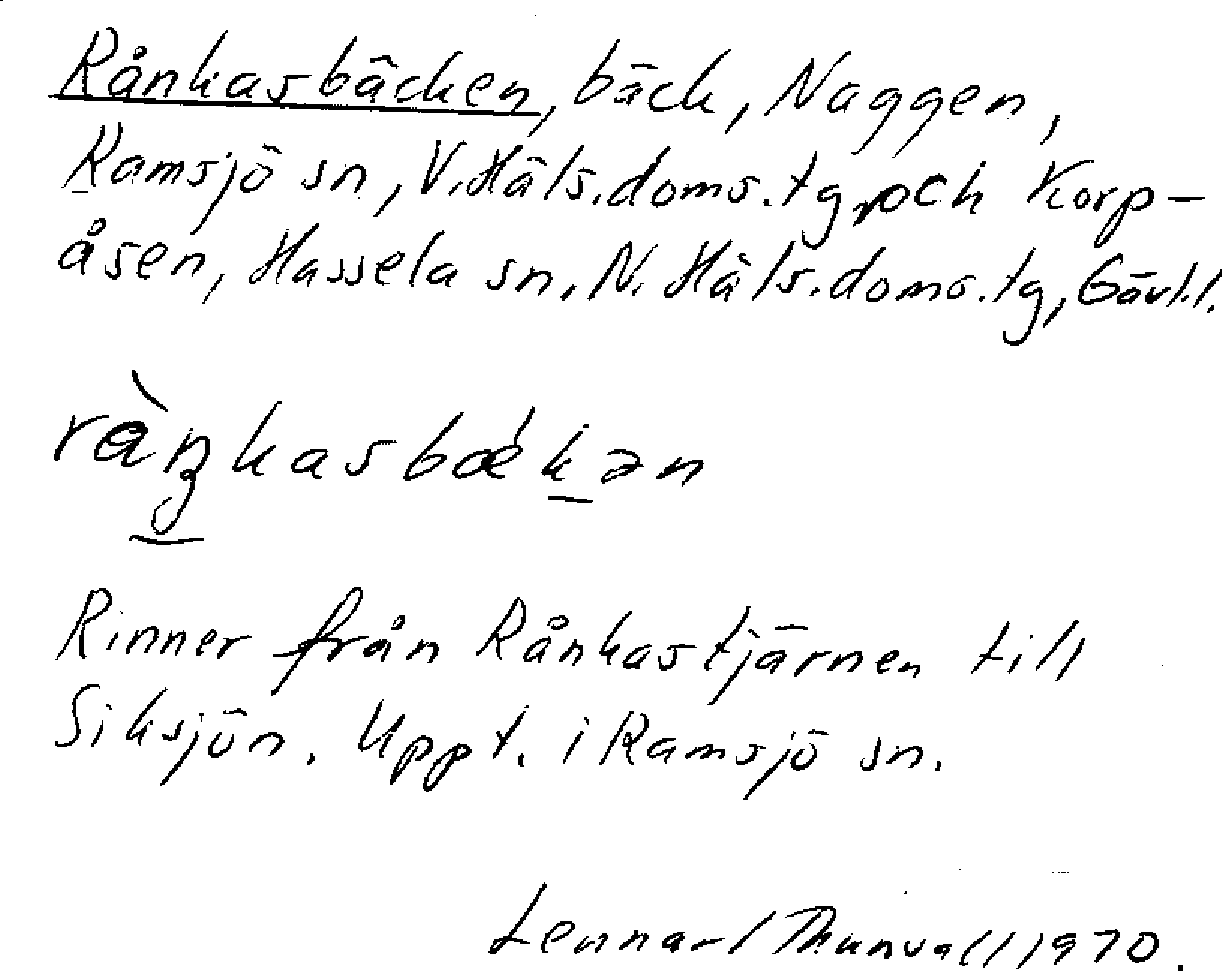 Rånkasbäcken, bäck, Naggen,
Ramsjö sn, V. Häls. doms. tg, och Korp-
åsen, Hassela sn, N. Häls. doms. tg, Gävl. l.
ràŋkasbǽkən
Rinner från Rånkastjärnen till
Siksjön. Uppt. i Ramsjö sn.
Lennart Thunvall 1970.